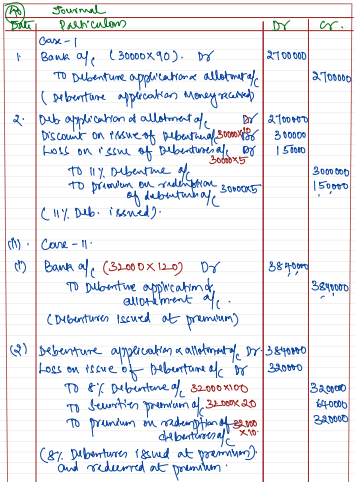 (A) Journal
Date Particulars Dr Cr.
Case - I
1. Bank a/c (30000 X 90) Dr 2700000
To Debenture application & allotment a/c 2700000
(Debenture application Money received)
2. Deb application & allotment a/c Dr 2700000
Discount on issue of Debenture a/c 30000X10 Dr 300000
Loss on issue of Debentures a/c Dr 15000
30000X5
To 11% Debenture a/c 3000000
To premium on redemption 30000X5 150000
of debenture a/c
(11% Deb. issued).
(ii). Case - II.
(1) Bank a/c (32000 X 120) Dr 3840000
To Debenture application &
allotament a/c. 3840000
(Debentures issued at premium)
(2) Debenture application & allotment a/c Dr. 3840000
Loss on issue of Debenture a/c Dr 320000
To 8% Debenture a/c 32000X100 320000
To Securities premium a/c 32000X20 640000
To premium on redemption of 32000 320000
debentures a/c X10.
(8% Debentures issued at premium)
and redeemed at premium.